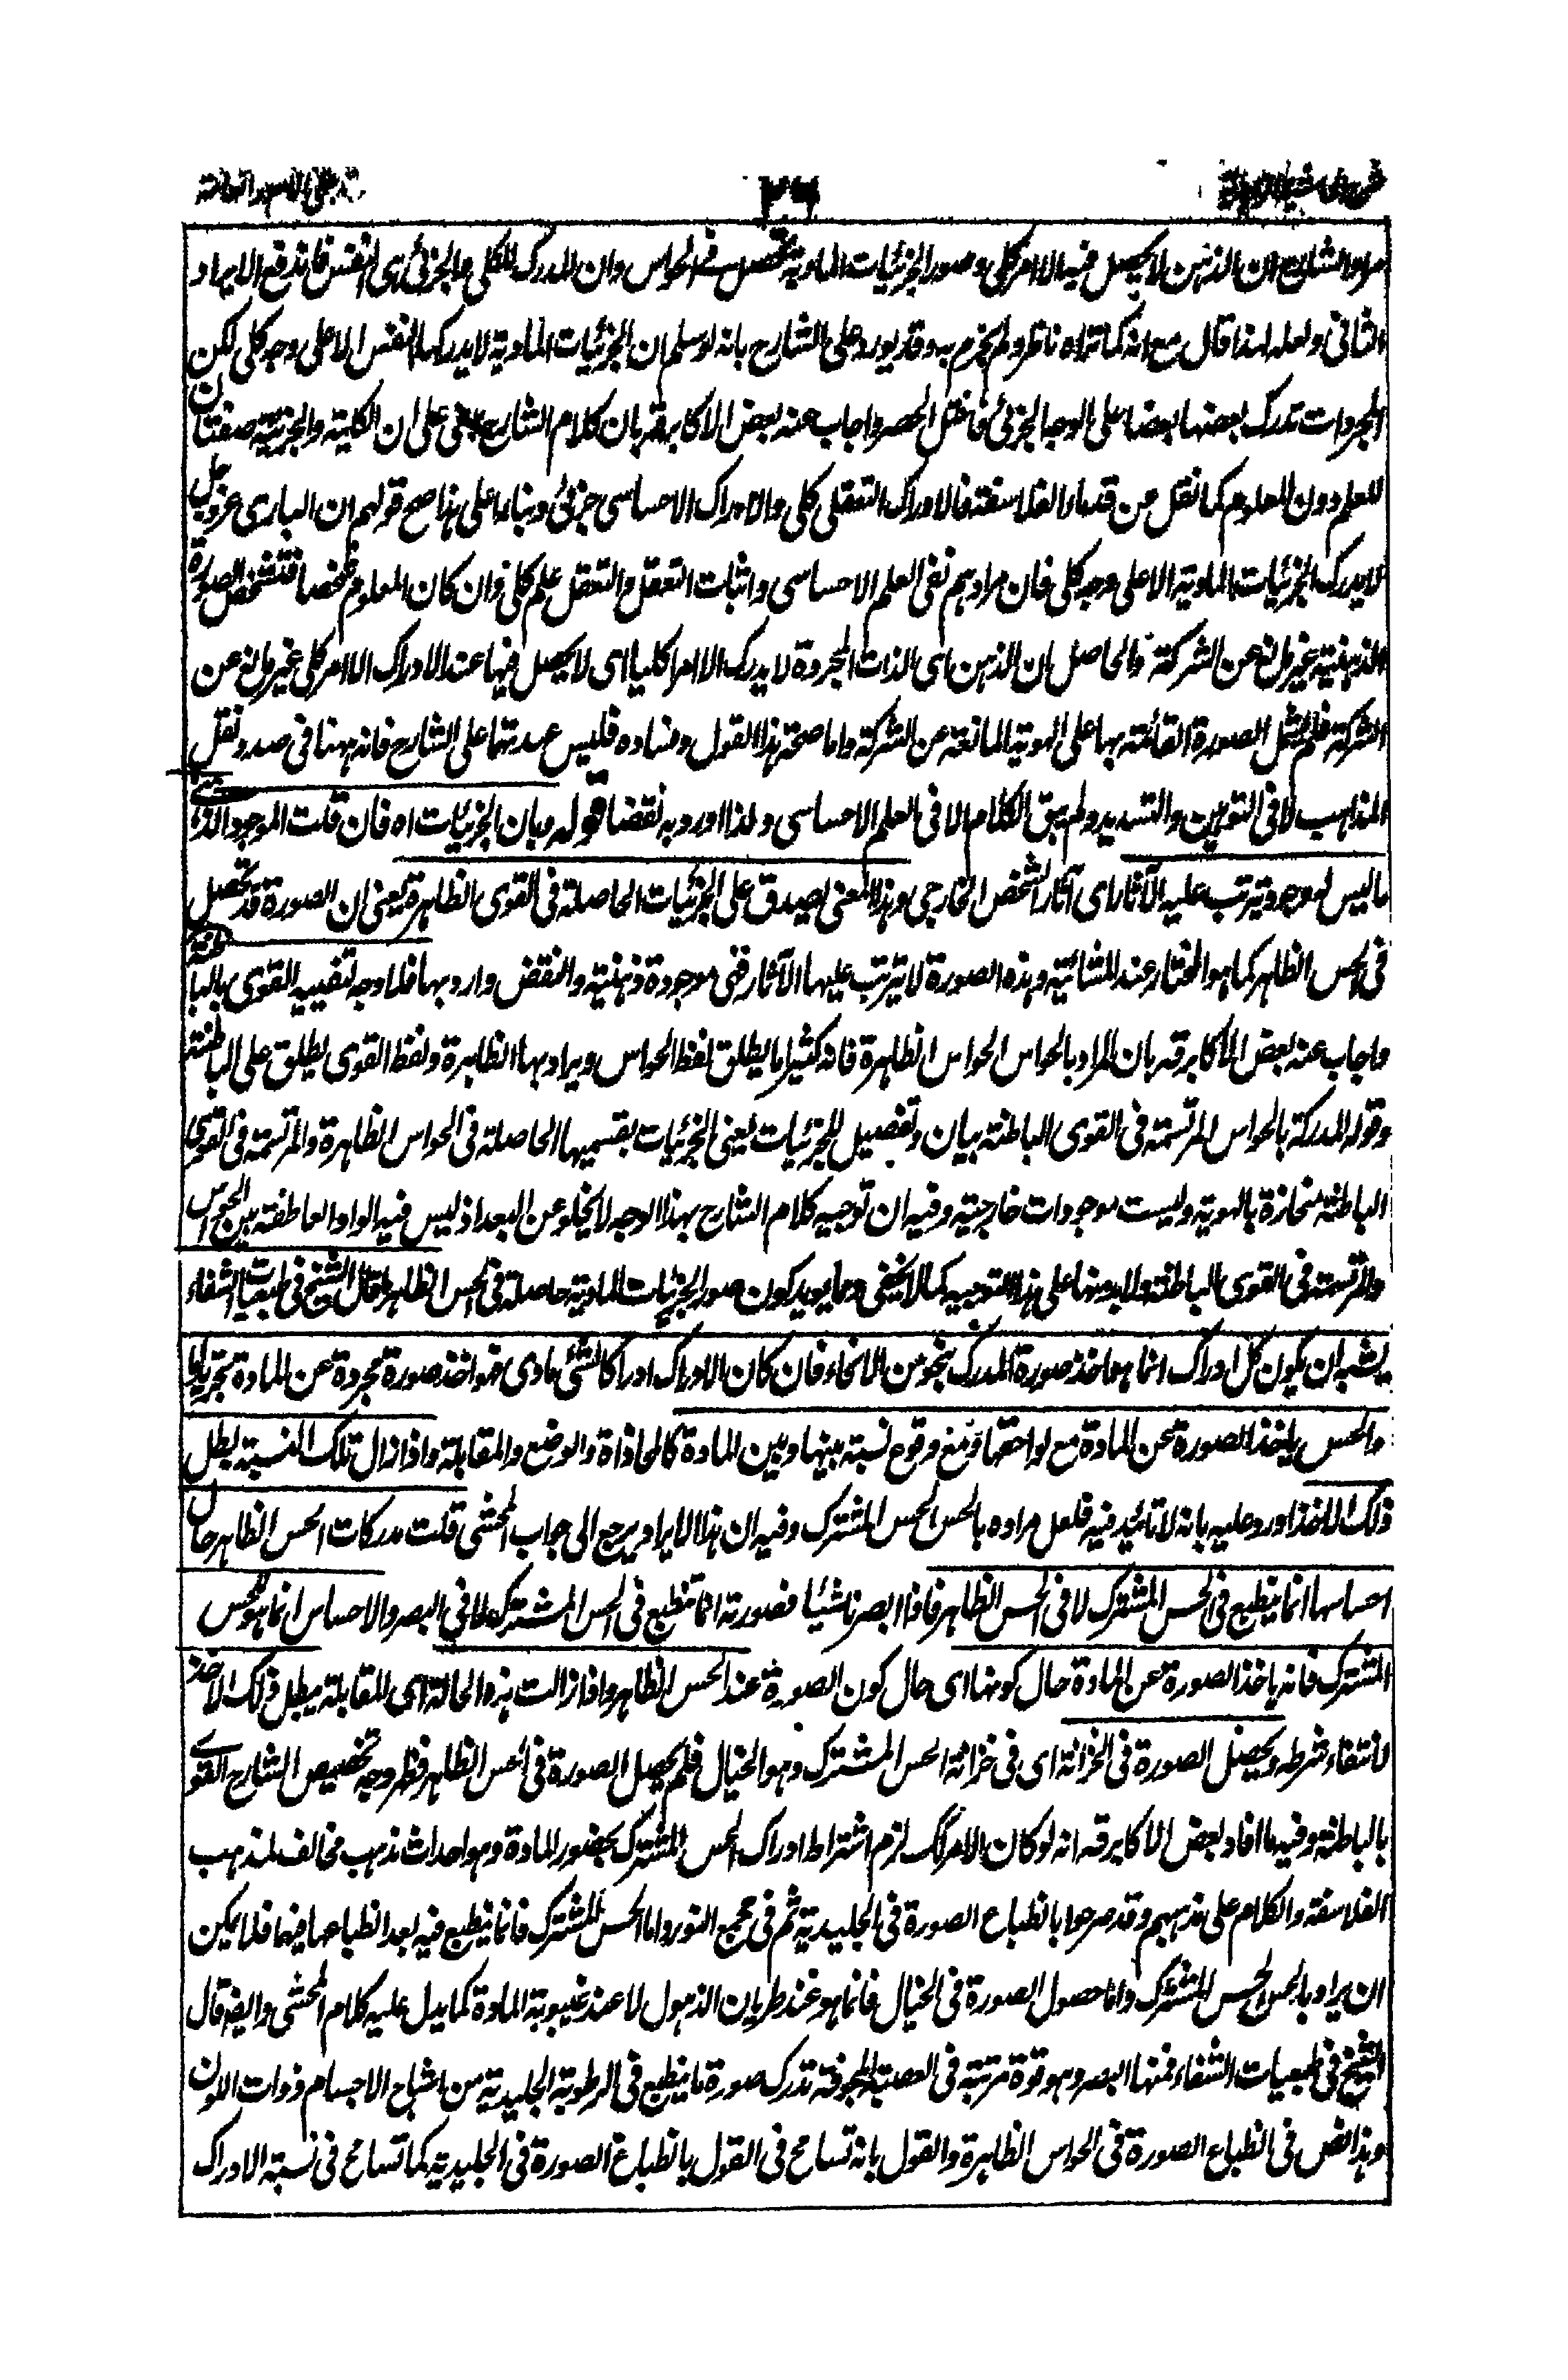 مراد الشارح ان الذهن لا يحصل فيه الا امر كلى وصور الجزئيات المادية تحصل فى الحواس وان المدرك للكلى والجزئى هى النفس فاندفع الايراد
الثانى ولعله لهذا قال مع انه كما تراه ناظر ولم يجزم به وقد يورد على الشارح بانه لو سلم ان الجزئيات المادية لا يدركها النفس الا على وجه كلى لكن
المجردات تدرك بعضها بعضا على الوجه الجزئى فاختل الحصر واجاب عنه بعض الاكابر قه بان كلام الشارح مبنى على ان الكلية والجزئية صفتان
للعلم دون المعلوم كما نقل عن قدماء الفلاسفة فالادراك التعقلى كلى والادراك الاحساسى جزئى وبناء على هذا صح قولهم ان البارى عز وجل
لا يدرك الجزئيات المادية الا على وجه كلى فان مرادهم نفى العلم الاحساسى واثبات التعقل والتعقل علم كلى وان كان المعلوم شخصا فتشخص الصورة
الذهنية غير مانع عن الشركة والحاصل ان الذهن اى الذات المجردة لا يدرك الا امرا كليا اى لا يحصل فيها عند الادراك الا امر كلى غير مانع عن
الشركة فلم تشمل الصورة القائمة بها على الهوية المانعة عن الشركة واما صحة هذا القول وفساده فليس عهدتها على الشارح فانه ههنا فى صدد نقل
المذاهب لا فى التوهين والتسديد ولم يبق الكلام الا فى العلم الاحساسى ولذا اورد به نقضا قوله وبان الجزئيات اه فان قلت الموجود الذهنى
ما ليس بوجود يترتب عليه الآثار اى آثار الشخص الخارجى وهذا المعنى يصدق على الجزئيات الحاصلة فى القوى الظاهرة يعنى ان الصورة قد تحصل
فى الحس الظاهر كما هو المختار عند المشائية وهذه الصورة لا تترتب عليها الآثار فهى موجودة ذهنية والنقض وارد بها فلا وجه لتقييد القوى بالباطنة
واجاب عنه بعض الاكابر قه بان المراد بالحواس الحواس الظاهرة فانه كثيرا ما يطلق لفظ الحواس ويراد بها الظاهرة ولفظ القوى يطلق على الباطنة
وقوله المدركة بالحواس المرتسمة فى القوى الباطنة بيان وتفصيل للجزئيات يعنى الجزئيات بقسميها الحاصلة فى الحواس الظاهرة والمرتسمة فى القوى
الباطنة منحازة بالهوية وليست موجودات خارجية وفيه ان توجيه كلام الشارح بهذا الوجه لا يخلو عن البعد اذ ليس فيه الواو العاطفة بين الحواس
والمرتسمة فى القوى الباطنة ولا بد منها على هذا التوجيه كما لا يخفى ومما يويد كون صور الجزئيات المادية حاصلة فى الحس الظاهر ما قال الشيخ فى طبعيات الشفاء
يشبه ان يكون كل ادراك انما هو اخذ صورة المدرك بنحو من الانحاء فان كان الادراك ادراكا لشئ مادى فهو اخذ صورة مجردة عن المادة تجريدا ما
والحس ياخذ الصورة عن المادة مع لواحقها ومع وقوع نسبة بينها وبين المادة كالمحاذاة والوضع والمقابلة واذا زال تلك النسبة يطل
ذلك الاخذ اورد عليه بانه لا تائيد فيه فلعل مراده بالحس الحس المشترك وفيه ان هذا الايراد يرجع الى جواب المحشى قلت مدركات الحس الظاهر حال
احساسها انما ينطبع فى الحس المشترك لا فى الحس الظاهر فاذا ابصرنا شيئا فصورته انما تنطبع فى الحس المشترك لا فى البصر والاحساس انما هو للحس
المشترك فانه ياخذ الصورة عن المادة حال كونها اى حال كون الصورة عند الحس الظاهر واذا زالت هذه الحالة اى المقابلة يبطل ذلك الاخذ
لانتفاء شرطه ويحصل الصورة فى الخزانة اى فى خزانة الحس المشترك وهو الخيال فلم يحصل الصورة فى الحس الظاهر فظهر وجه تخصيص الشارح القوى
بالباطنة وفيه ما افاد بعض الاكابر قه انه لو كان الامر كك لزم اشتراط ادراك الحس المشترك بحضور المادة وهو احداث مذهب مخالف لمذهب
الفلاسفة والكلام على مذهبهم وقد صرحوا بانطباع الصورة فى الجليدية ثم فى مجمع النور واما الحس المشترك فانما ينطبع فيه بعد انطباعها فيها فلا يمكن
ان يراد بالحس الحس المشترك واما حصول الصورة فى الخيال فانما هو عند طريان الذهول لا عند غيبوبة المادة كما يدل عليه كلام المحشى وايضا قال
الشيخ فى طبعيات الشفاء فمنها البصر وهو قوة مرتبة فى العصبة المجوفة تدرك صورة ما ينطبع فى الرطوبة الجليدية من اشباح الاجسام ذوات اللون
وهذا نص فى انطباع الصورة فى الحواس الظاهرة والقول بانه تسامح فى القول بانطباع الصورة فى الجليدية كما تسامح فى نسبة الادراك